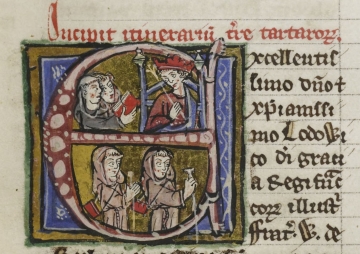 Incipit itinerariū t̄re tartarorꝝ.
Excellentis
simo dño ⁊
xp̄ianissi
mo Lodowi
co dī graci
a Regi
corꝝ illustͥ
W. de